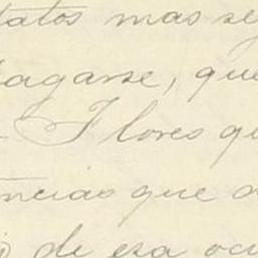 datos mas se
pagarse, que
Flores qu
ncias que d
de esa ocu